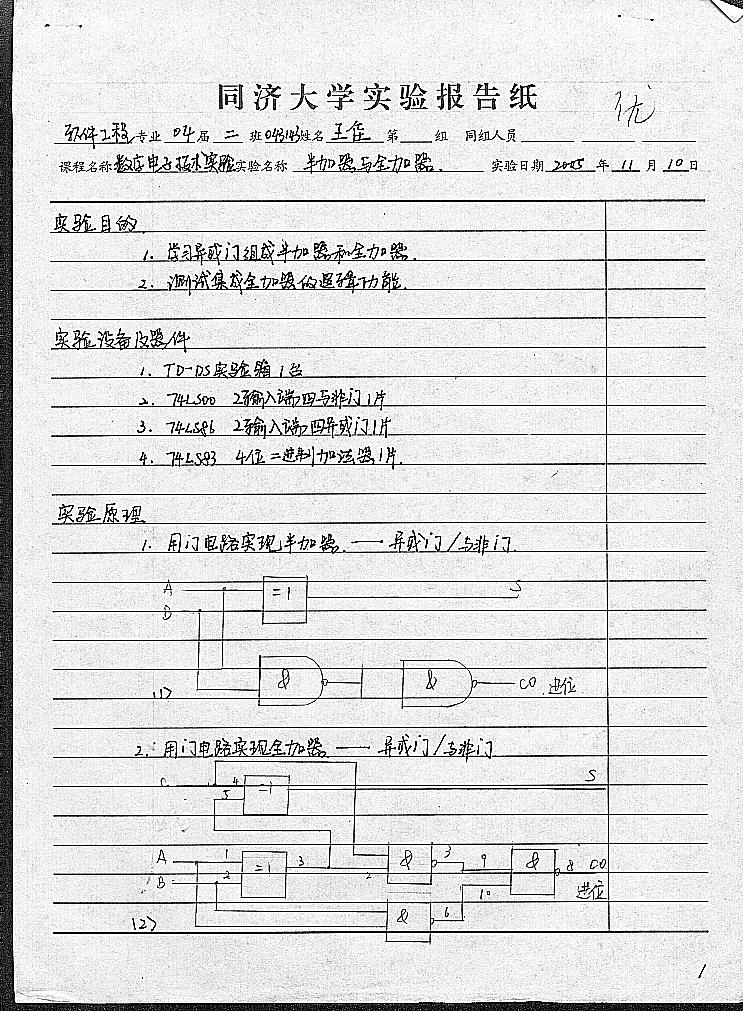 同济大学实验报告纸
优
软件工程专业 04届 二 班043143姓名 王佳 第 组 同组人员
课程名称数字电子技术实验实验名称 半加器与全加器. 实验日期 2005 年 11 月 10 日
实验目的
1. 学习异或门组成半加器和全加器.
2. 测试集成全加器的逻辑功能.
实验设备及器件
1. TD-DS实验箱1台
2. 74LS00 2输入端四与非门1片
3. 74LS86 2输入端四异或门1片
4. 74LS83 4位二进制加法器1片.
实验原理
1. 用门电路实现半加器. — 异或门/与非门.
A =1 S
B
(1) & & CO 进位
2. 用门电路实现全加器. — 异或门/与非门
C 4 =1 S
5
A 1 =1 3 & 3 9 & 8 CO
B 2 2 10 进位
(2) & 6
1